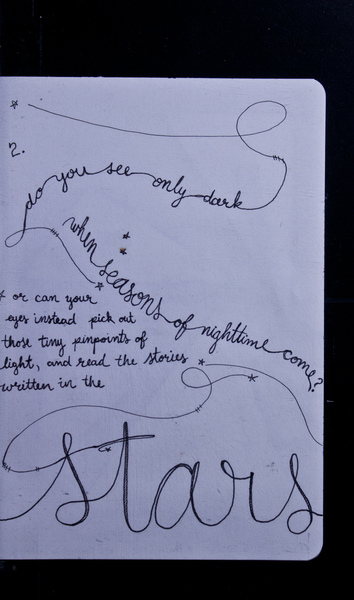 2.
do you see only dark
when seasons of nighttime come?
or can your
eyes instead pick out
those tiny pinpoints of
light, and read the stories
written in the
stars